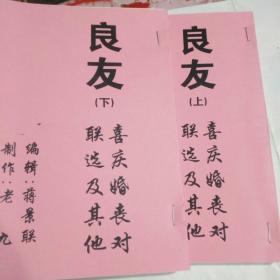 良友
(下)
喜庆婚丧对
联选及其他
编辑:蒋景联
制作:老九
良友
(上)
喜庆婚丧对
联选及其他